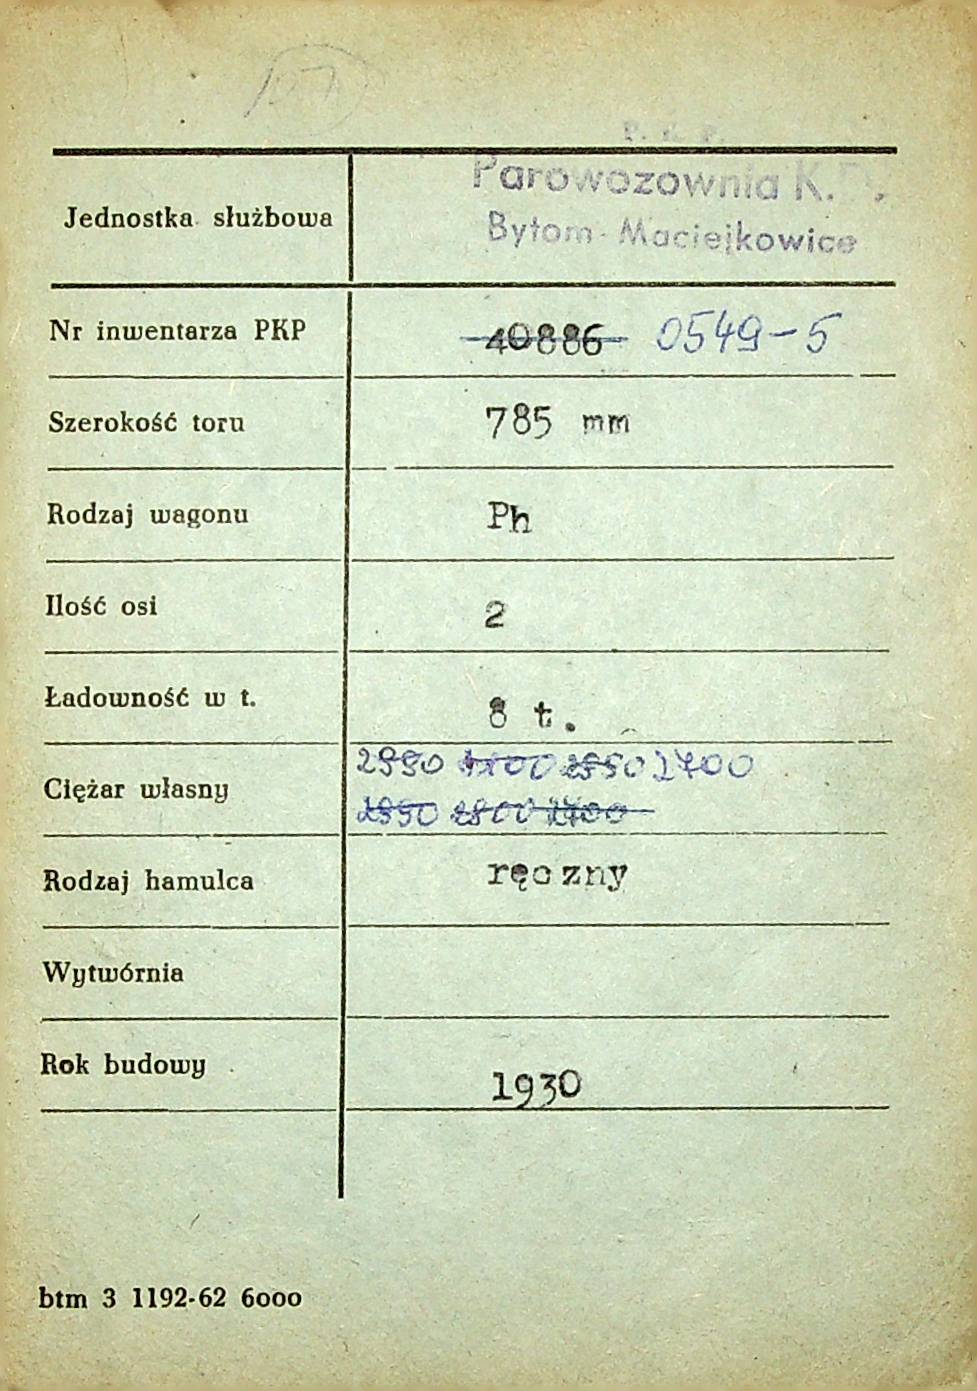 P. K. P.
Parowozownia K. D.
Bytom - Maciejkowice
Jednostka służbowa
Nr inwentarza PKP 40886 0549-5
Szerokość toru 785 mm
Rodzaj wagonu Ph
Ilość osi 2
Ładowność w t. 8 t.
2990 2700
Ciężar własny
2800 2700
Rodzaj hamulca ręczny
Wytwórnia
Rok budowy 1930
btm 3 1192-62 6000